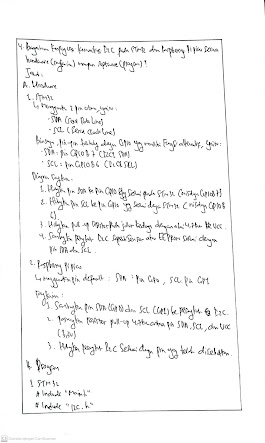 4. Bagaimana konfigurasi komunikasi I2C pada STM32 dan Raspberry Pi pico secara
hardware (   ) maupun software (program)?
Jawab :
A. Hardware
1. STM32
↳ Menggunakan 2 pin utama, yaitu :
- SDA (Serial Data Line)
- SCL (Serial Clock Line)
Biasanya, pin-pin           GPIO yg memiliki fungsi alternate, yaitu :
- SDA : Pin GPIOB 7 (I2C1 SDA)
- SCL : Pin GPIOB 6 (I2C1 SCL)
Dengan langkah :
1. Hubungkan pin SDA ke pin GPIO yg sesuai pada STM32 (misalnya GPIOB 7)
2. Hubungkan pin SCL ke pin GPIO yg sesuai dgn STM32 (misalnya GPIOB
6)
3. Hubungkan pull-up resistor pada                 4.7k     ke VCC.
4. Sambungkan perangkat I2C seperti sensor atau EEPROM sesuai dengan
pin SDA dan SCL.
2. Raspberry Pi pico
↳ menggunakan pin default : SDA : pin GP0, SCL pin GP1
Langkah :
1. Sambungkan pin SDA (GP0) dan SCL (GP1) ke perangkat I2C.
2. pasangkan resistor pull-up 4.7k      pin SDA, SCL, dan VCC
(3.3V)
3. Hubungkan perangkat I2C sesuai dgn pin yg telah disebutkan.
B. Program
1. STM32
# Include "main.h"
# Include "i2c.h"